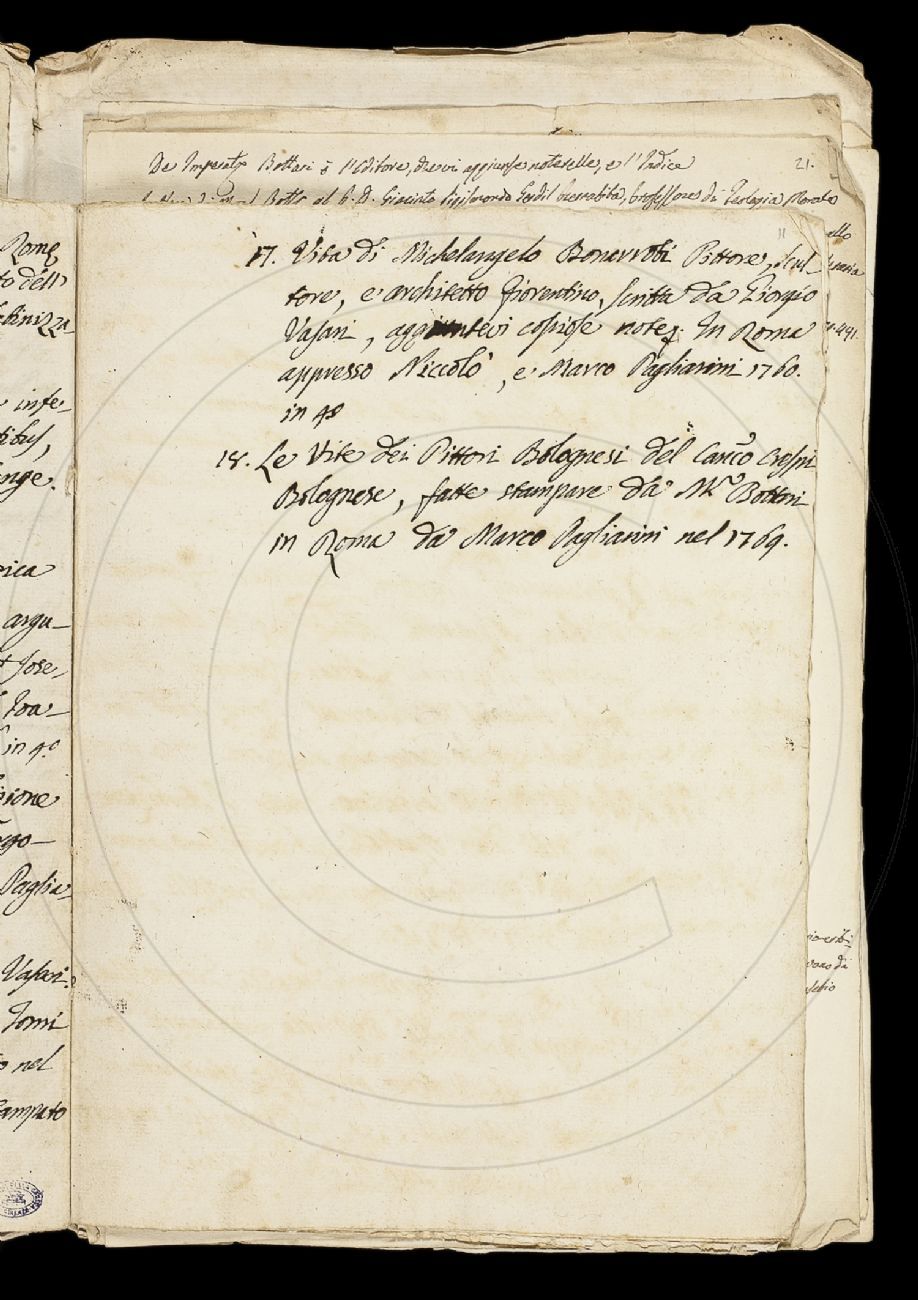 De Imperatr Bottari è l'Editore, che vi aggiunse noterelle, e l'Indice
21.
al P. D. Giacinto Sigismondo Gerdil Barnabita, Professore di Teologia Morale
11
17. Vita di Michelangelo Bonarroti Pittore, Scul-
tore, e architetto fiorentino, scritta da Giorgio
Vasari, aggiuntevi copiose note. In Roma
appresso Niccolò, e Marco Pagliarini 1760.
in 4°
18. Le Vite dei Pittori Bolognesi del Can.co Crespi
Bolognese, fatte stampare da M.r Bottari
in Roma da Marco Pagliarini nel 1769.
Rome
to dell'
infe-
tibus,
nge.
argu-
Jose-
Joa-
in 4°
sione
Paglia-
Vasari
Tomi
nel
tampato